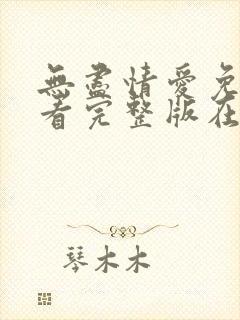 無盡情愛免
看完整版在
琴木木